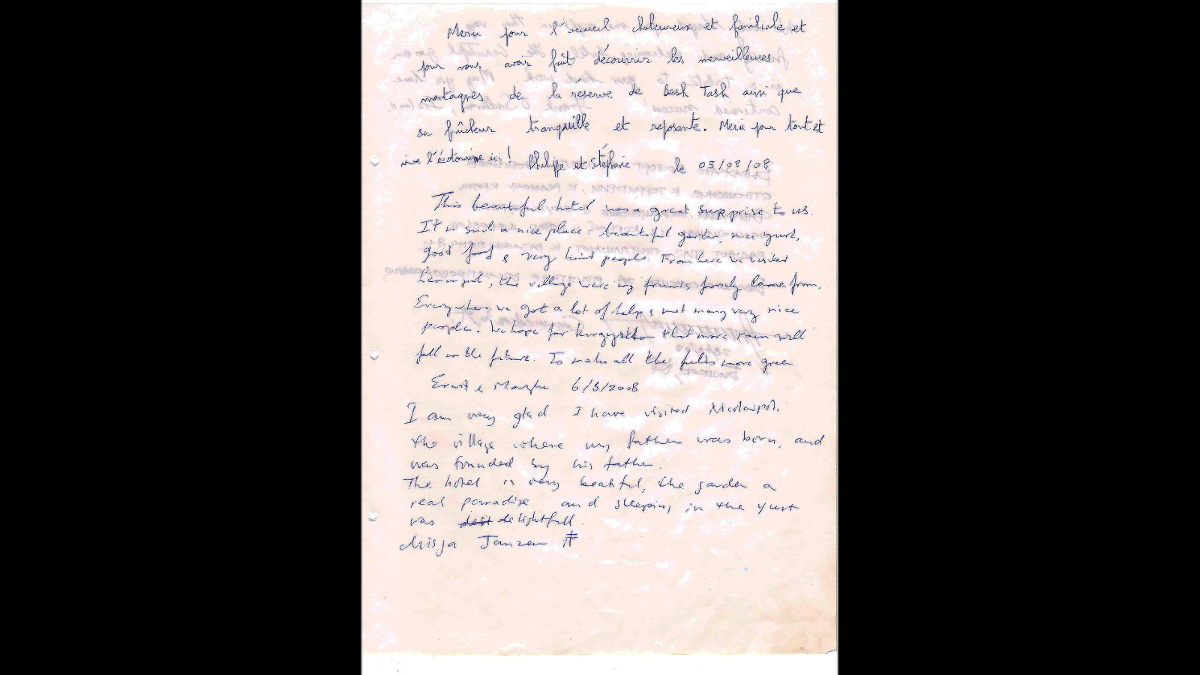 Merci pour l'accueil chaleureux et familiale et
pour nous avoir fait découvrir les merveilleuses
montagnes de la réserve de Besh Tash ainsi que
sa fraîcheur tranquille et reposante. Merci pour tout et
vive l'écotourisme ici! Philippe et Stéphanie le 05/08/08
This beautiful hotel was a great suprise to us.
It is such a nice place: beautiful garden, nice yurt,
good food & very kind people. From here we visited
the village were my friends family came from.
Everywhere we got a lot of help & met many very nice
people. We hope for Kirgyzstan that more rain will
fall in the future. To make all the fields more green
Ernst & 6/8/2008
I am very glad I have visited Nicolaipol.
the village where my father was born, and
was founded by his father.
The hotel is very beatiful, the garden a
real paradise and sleeping in the yurt
was delightfull.
Misja Janzen